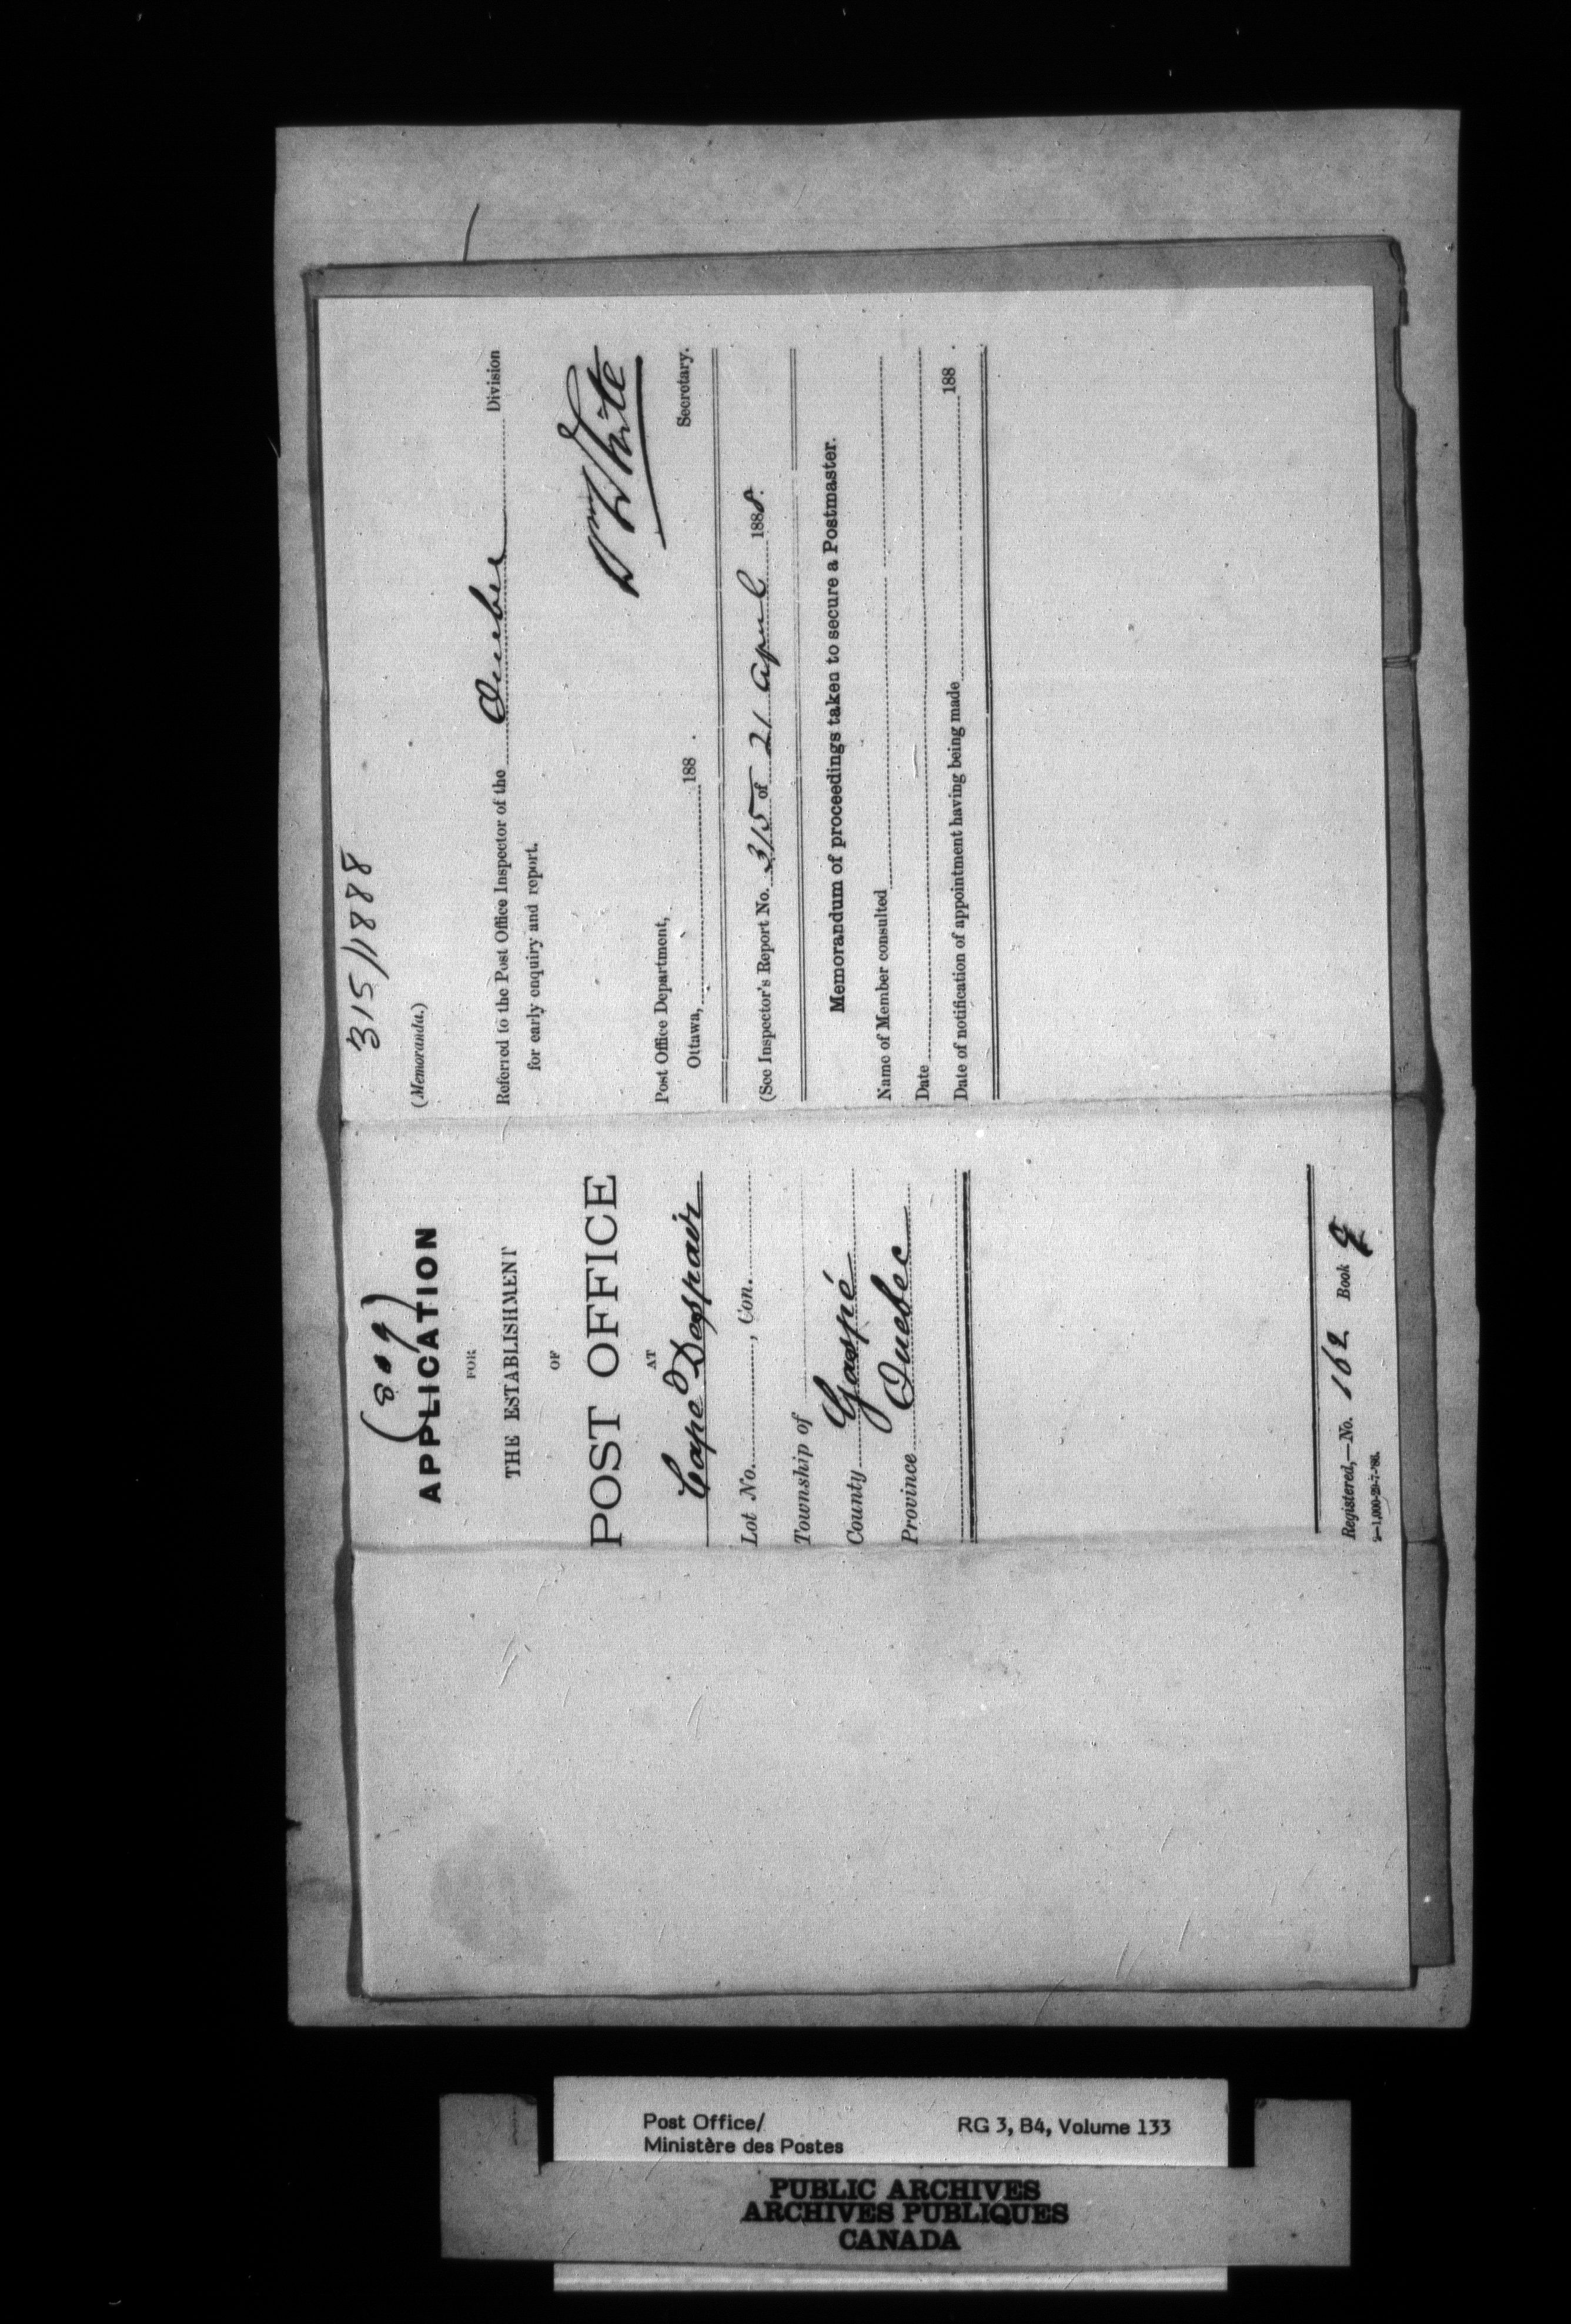 (809)
APPLICATION
FOR
THE ESTABLISHMENT
OF
POST OFFICE
AT
Cape Despair
Lot No. , Con.
Township of
County Gaspé
Province Quebec
Registered,—No. 162 Book 9
2—1,000-29-7-'86.
315/1888
(Memoranda.)
Referred to the Post Office Inspector of the Quebec Division
for early enquiry and report.
Wm White
Secretary.
Post Office Department,
Ottawa, 188 .
(See Inspector's Report No. 315 of 21 April 1888.
Memorandum of proceedings taken to secure a Postmaster.
Name of Member consulted
Date
Date of notification of appointment having being made 188 .
Post Office/
Ministère des Postes
RG 3, B4, Volume 133
PUBLIC ARCHIVES
ARCHIVES PUBLIQUES
CANADA